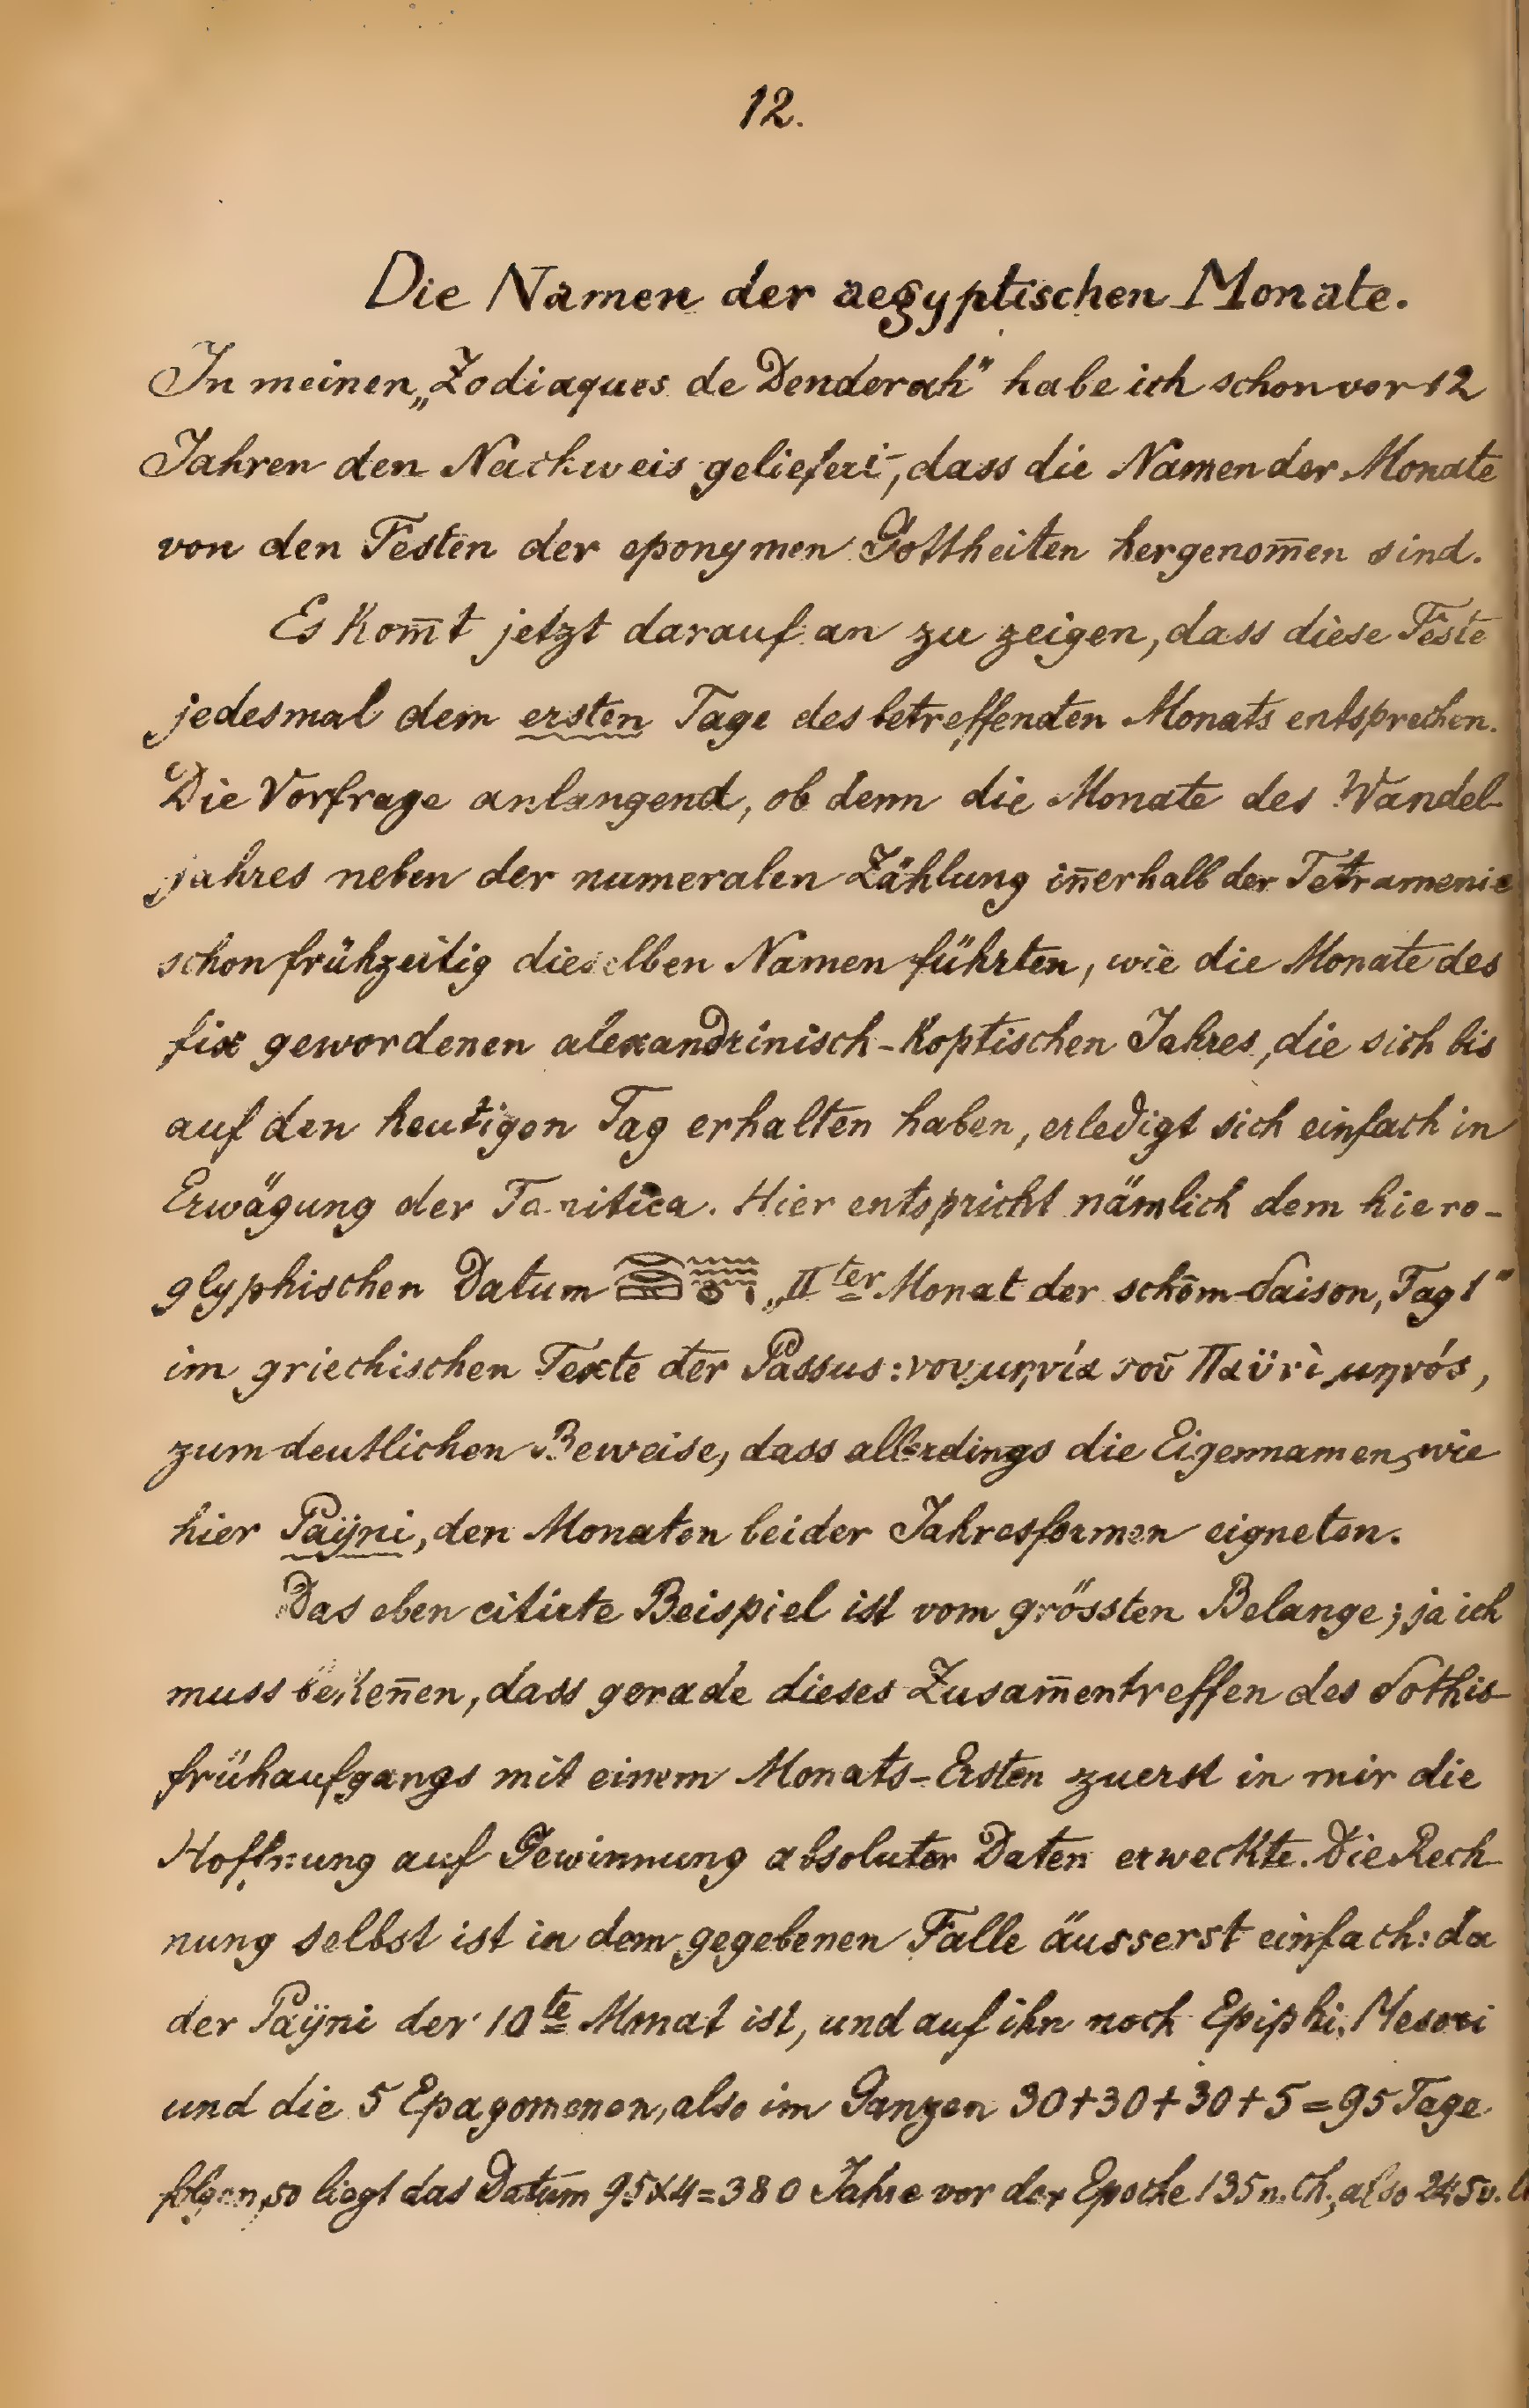 12.
Die Namen der aegyptischen Monate.
In meinen „Zodiaques de Denderah" habe ich schon vor 12
Jahren den Nachweis geliefert, dass die Namen der Monate
von den Festen der eponymen Gottheiten hergenom̅en sind.
Es kom̅t jetzt darauf an zu zeigen, dass diese Feste
jedesmal dem ersten Tage des betreffenden Monats entsprechen.
Die Vorfrage anlangend, ob denn die Monate des Wandel-
jahres neben der numeralen Zählung in̅erhalb der Tetramenie
schon frühzeitig dieselben Namen führten, wie die Monate des
fix gewordenen alexandrinisch-koptischen Jahres, die sich bis
auf den heutigen Tag erhalten haben, erledigt sich einfach in
Erwägung der Tanitica. Hier entspricht nämlich dem hiero-
glyphischen Datum „IIter Monat der schôm-Saison, Tag 1"
im griechischen Texte der Passus: νουμηνία τοῦ Παϋνὶ μηνός,
zum deutlichen Beweise, dass allerdings die Eigennamen, wie
hier Paÿni, den Monaten beider Jahresformen eigneten.
Das eben citirte Beispiel ist vom grössten Belange; ja ich
muss beken̅en, dass gerade dieses Zusam̅entreffen des Sothis-
frühaufgangs mit einem Monats-Ersten zuerst in mir die
Hoffnung auf Gewinnung absoluter Daten erweckte. Die Rech-
nung selbst ist in dem gegebenen Falle äusserst einfach: da
der Paÿni der 10te Monat ist, und auf ihn noch Epiphi, Mesori
und die 5 Epagomenen, also im Ganzen 30+30+30+5=95 Tage
folgen, so liegt das Datum 95x4=380 Jahre vor der Epoche 135 n. Ch., also 245 v.